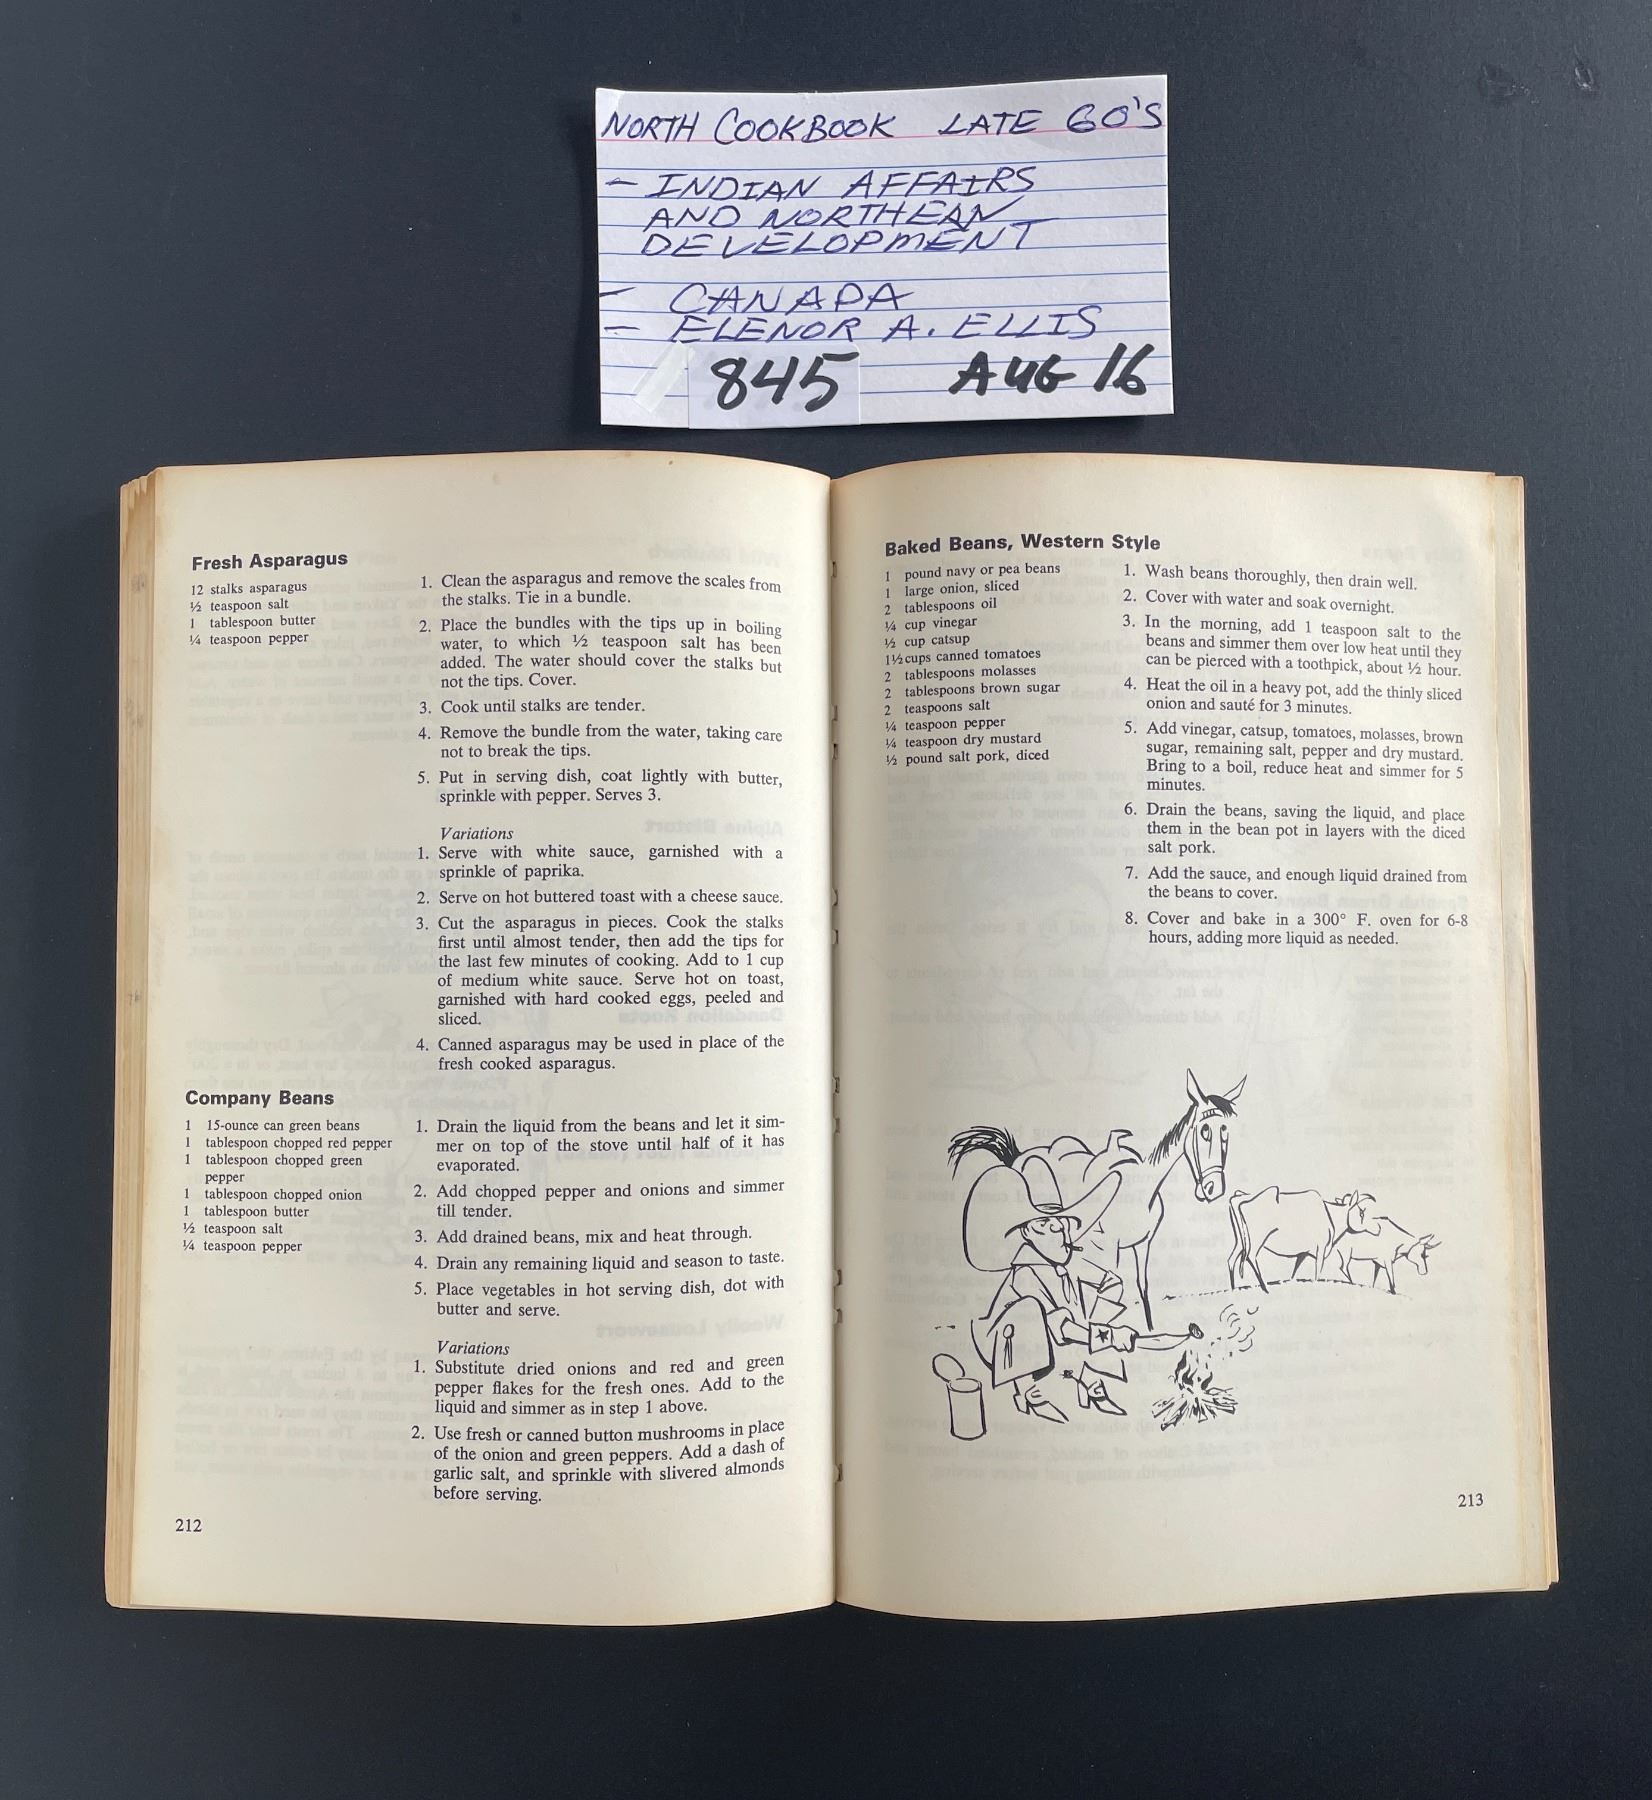 NORTH COOKBOOK LATE 60'S
- INDIAN AFFAIRS
AND NORTHEAN
DEVELOPMENT
- CANADA
- ELENOR A. ELLIS
845 AUG 16
Fresh Asparagus
12 stalks asparagus
½ teaspoon salt
1 tablespoon butter
¼ teaspoon pepper
1. Clean the asparagus and remove the scales from
the stalks. Tie in a bundle.
2. Place the bundles with the tips up in boiling
water, to which ½ teaspoon salt has been
added. The water should cover the stalks but
not the tips. Cover.
3. Cook until stalks are tender.
4. Remove the bundle from the water, taking care
not to break the tips.
5. Put in serving dish, coat lightly with butter,
sprinkle with pepper. Serves 3.
Variations
1. Serve with white sauce, garnished with a
sprinkle of paprika.
2. Serve on hot buttered toast with a cheese sauce.
3. Cut the asparagus in pieces. Cook the stalks
first until almost tender, then add the tips for
the last few minutes of cooking. Add to 1 cup
of medium white sauce. Serve hot on toast,
garnished with hard cooked eggs, peeled and
sliced.
4. Canned asparagus may be used in place of the
fresh cooked asparagus.
Company Beans
1 15-ounce can green beans
1 tablespoon chopped red pepper
1 tablespoon chopped green
pepper
1 tablespoon chopped onion
1 tablespoon butter
½ teaspoon salt
¼ teaspoon pepper
1. Drain the liquid from the beans and let it sim-
mer on top of the stove until half of it has
evaporated.
2. Add chopped pepper and onions and simmer
till tender.
3. Add drained beans, mix and heat through.
4. Drain any remaining liquid and season to taste.
5. Place vegetables in hot serving dish, dot with
butter and serve.
Variations
1. Substitute dried onions and red and green
pepper flakes for the fresh ones. Add to the
liquid and simmer as in step 1 above.
2. Use fresh or canned button mushrooms in place
of the onion and green peppers. Add a dash of
garlic salt, and sprinkle with slivered almonds
before serving.
212
Baked Beans, Western Style
1 pound navy or pea beans
1 large onion, sliced
2 tablespoons oil
¼ cup vinegar
½ cup catsup
1½ cups canned tomatoes
2 tablespoons molasses
2 tablespoons brown sugar
2 teaspoons salt
¼ teaspoon pepper
¼ teaspoon dry mustard
½ pound salt pork, diced
1. Wash beans thoroughly, then drain well.
2. Cover with water and soak overnight.
3. In the morning, add 1 teaspoon salt to the
beans and simmer them over low heat until they
can be pierced with a toothpick, about ½ hour.
4. Heat the oil in a heavy pot, add the thinly sliced
onion and sauté for 3 minutes.
5. Add vinegar, catsup, tomatoes, molasses, brown
sugar, remaining salt, pepper and dry mustard.
Bring to a boil, reduce heat and simmer for 5
minutes.
6. Drain the beans, saving the liquid, and place
them in the bean pot in layers with the diced
salt pork.
7. Add the sauce, and enough liquid drained from
the beans to cover.
8. Cover and bake in a 300° F. oven for 6-8
hours, adding more liquid as needed.
213